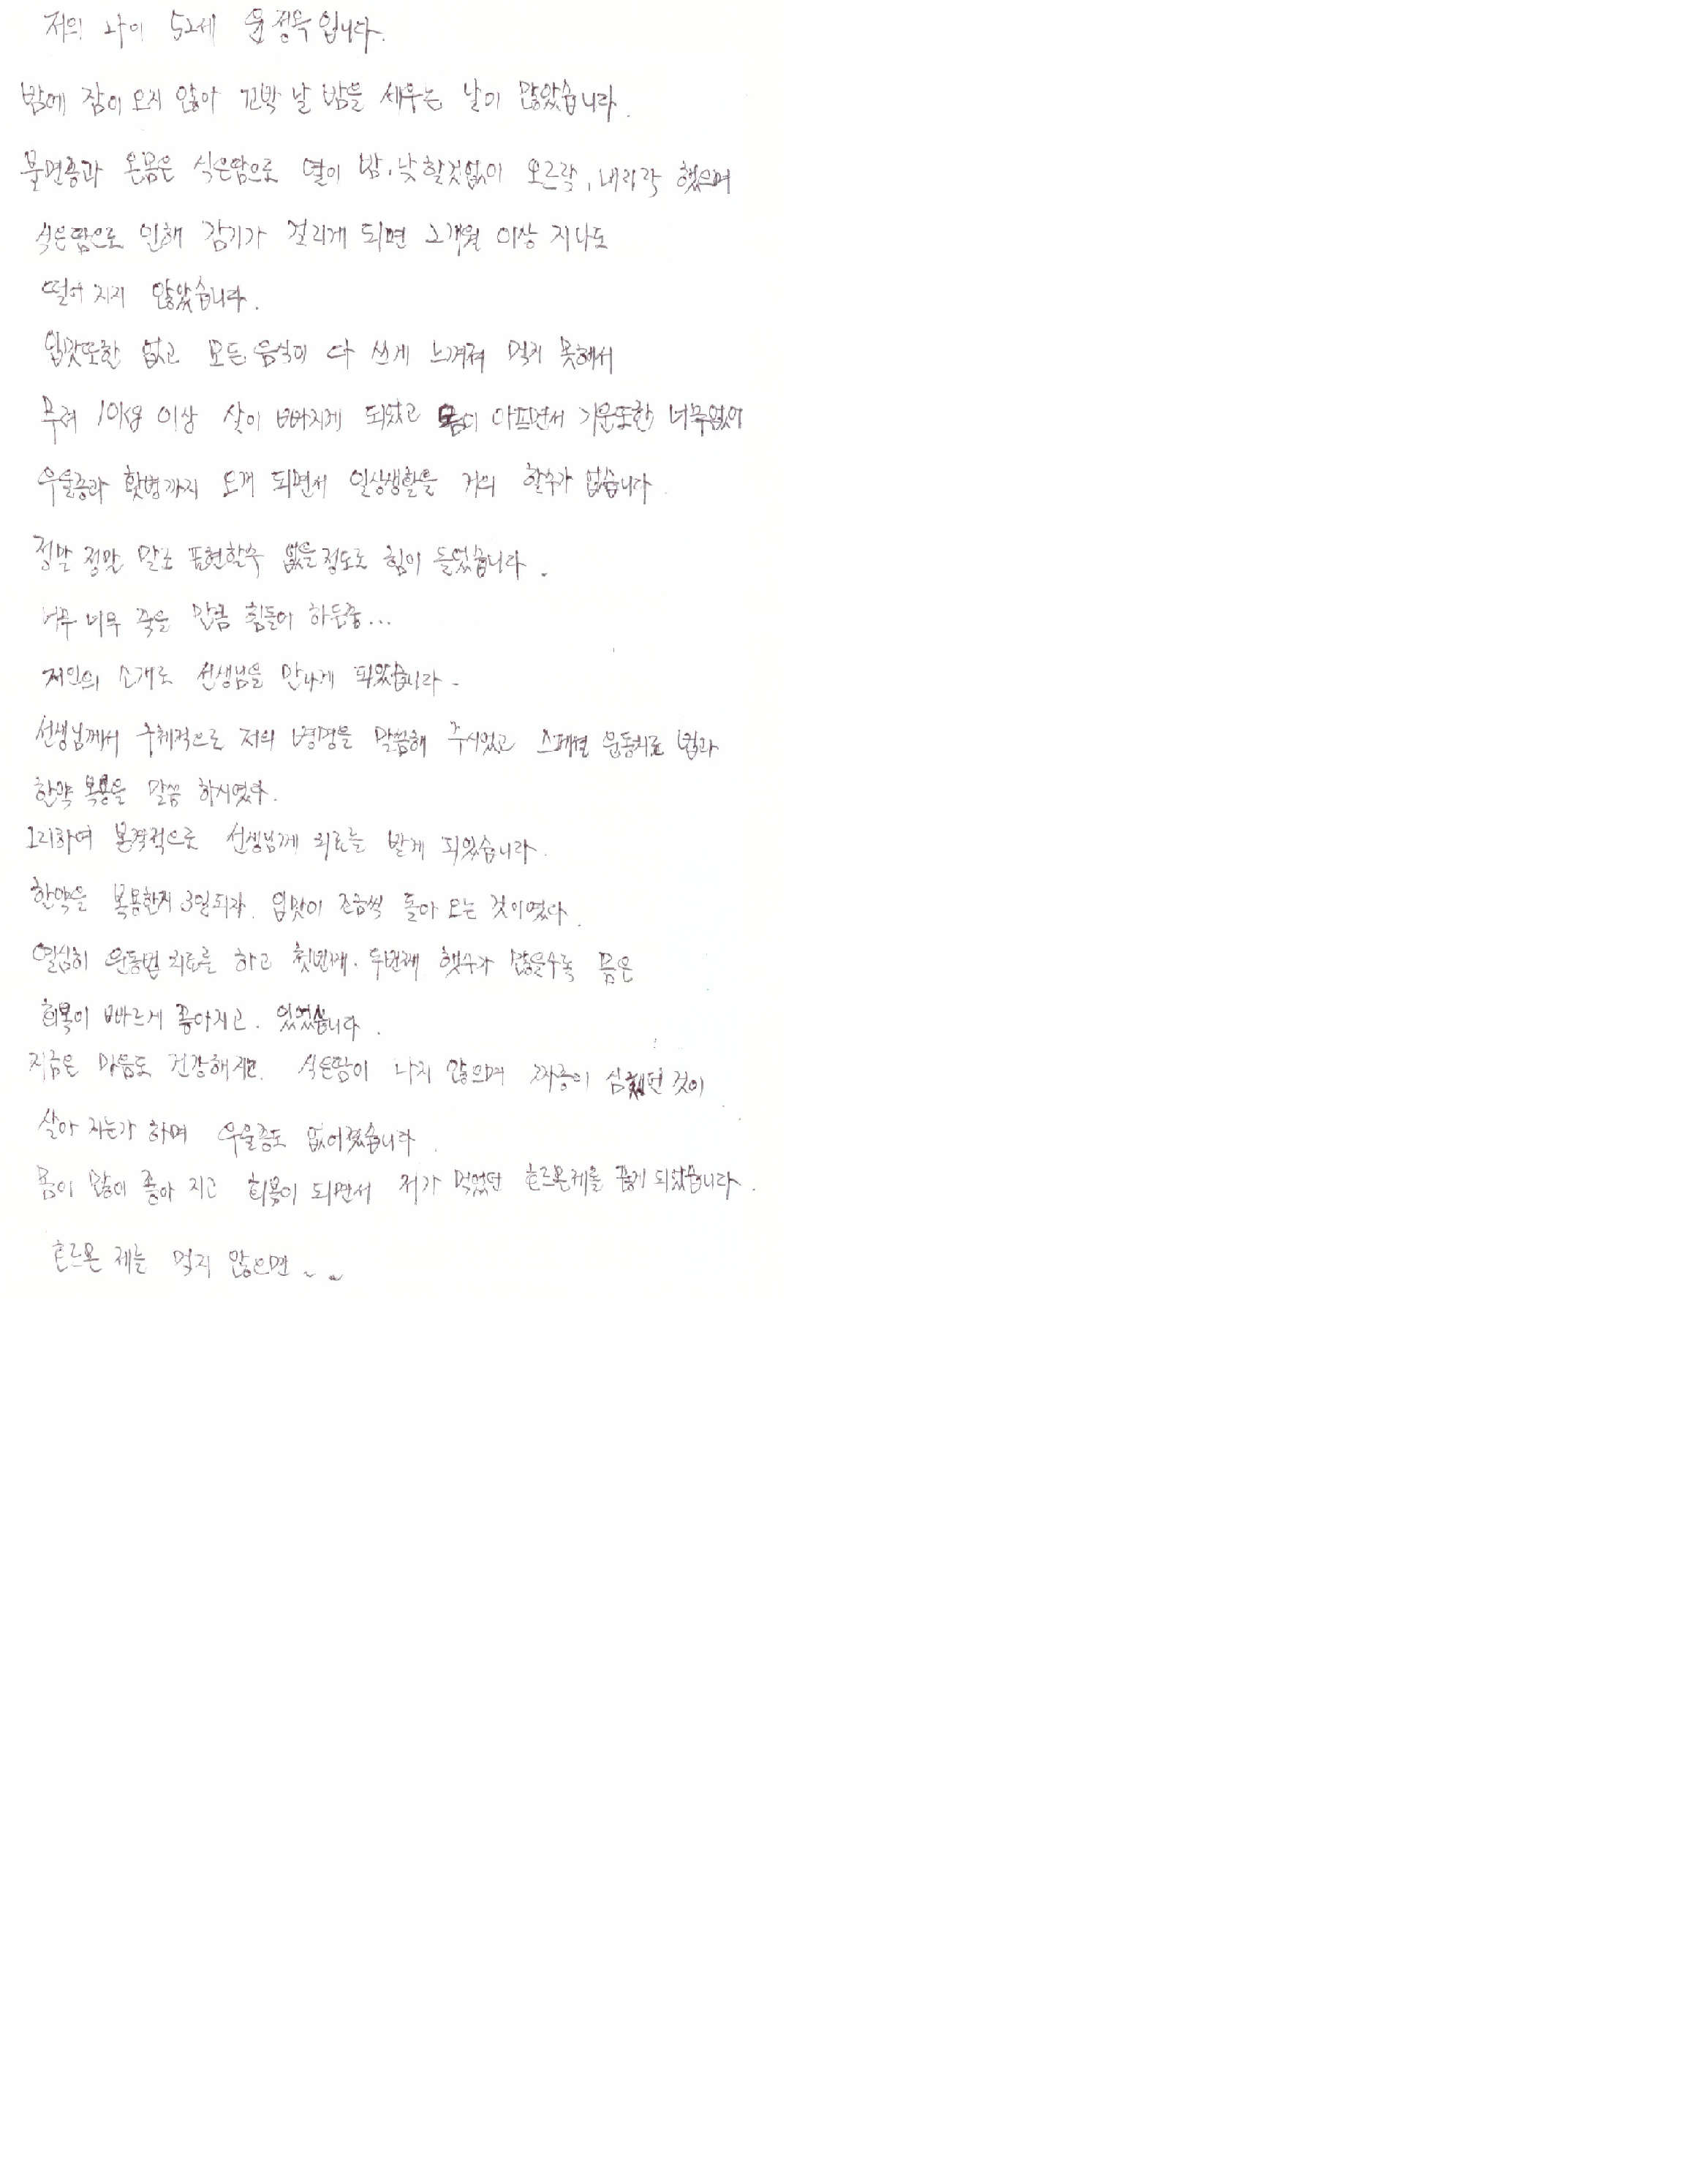 저의 나이 52세 윤정옥입니다.
밤에 잠이 오지 않아 꼬박 날 밤을 세우는 날이 많았습니다.
불면증과 온몸은 식은땀으로 열이 밤, 낮 할것없이 오르락, 내리락 했으며
식은땀으로 인해 감기가 걸리게 되면 2개월 이상 지나도
떨어 지지 않았습니다.
입맛또한 없고 모든 음식이 다 쓰게 느껴져 먹지 못해서
무려 10kg 이상 살이 빠지게 되었고 몸이 아프면서 기운또한 너무없어
우울증과 홧병까지 오게 되면서 일상생활을 거의 할수가 없습니다
정말 정말 말로 표현할수 없을정도로 힘이 들었습니다.
너무 너무 죽을 만큼 힘들어 하든중...
지인의 소개로 선생님을 만나게 되었습니다.
선생님께서 구체적으로 저의 병명을 말씀해 주시었고 스페셜 운동치료 법과
한약 복용을 말씀 하시였다.
그리하여 본격적으로 선생님께 치료를 받게 되었습니다.
한약을 복용한지 3일되자. 입맛이 조금씩 돌아 오는 것이였다.
열심히 운동법 치료를 하고 첫번째. 두번째 횟수가 많을수록 몸은
회복이 빠르게 좋아지고. 있었습니다.
지금은 마음도 건강해지고. 식은땀이 나지 않으며 짜증이 심했던 것이
살아 지는가 하며 우울증도 없어졌습니다.
몸이 많이 좋아 지고 회복이 되면서 저가 먹었던 호르몬제를 끊게 되었습니다.
호르몬 제는 먹지 않으면 ~ ~